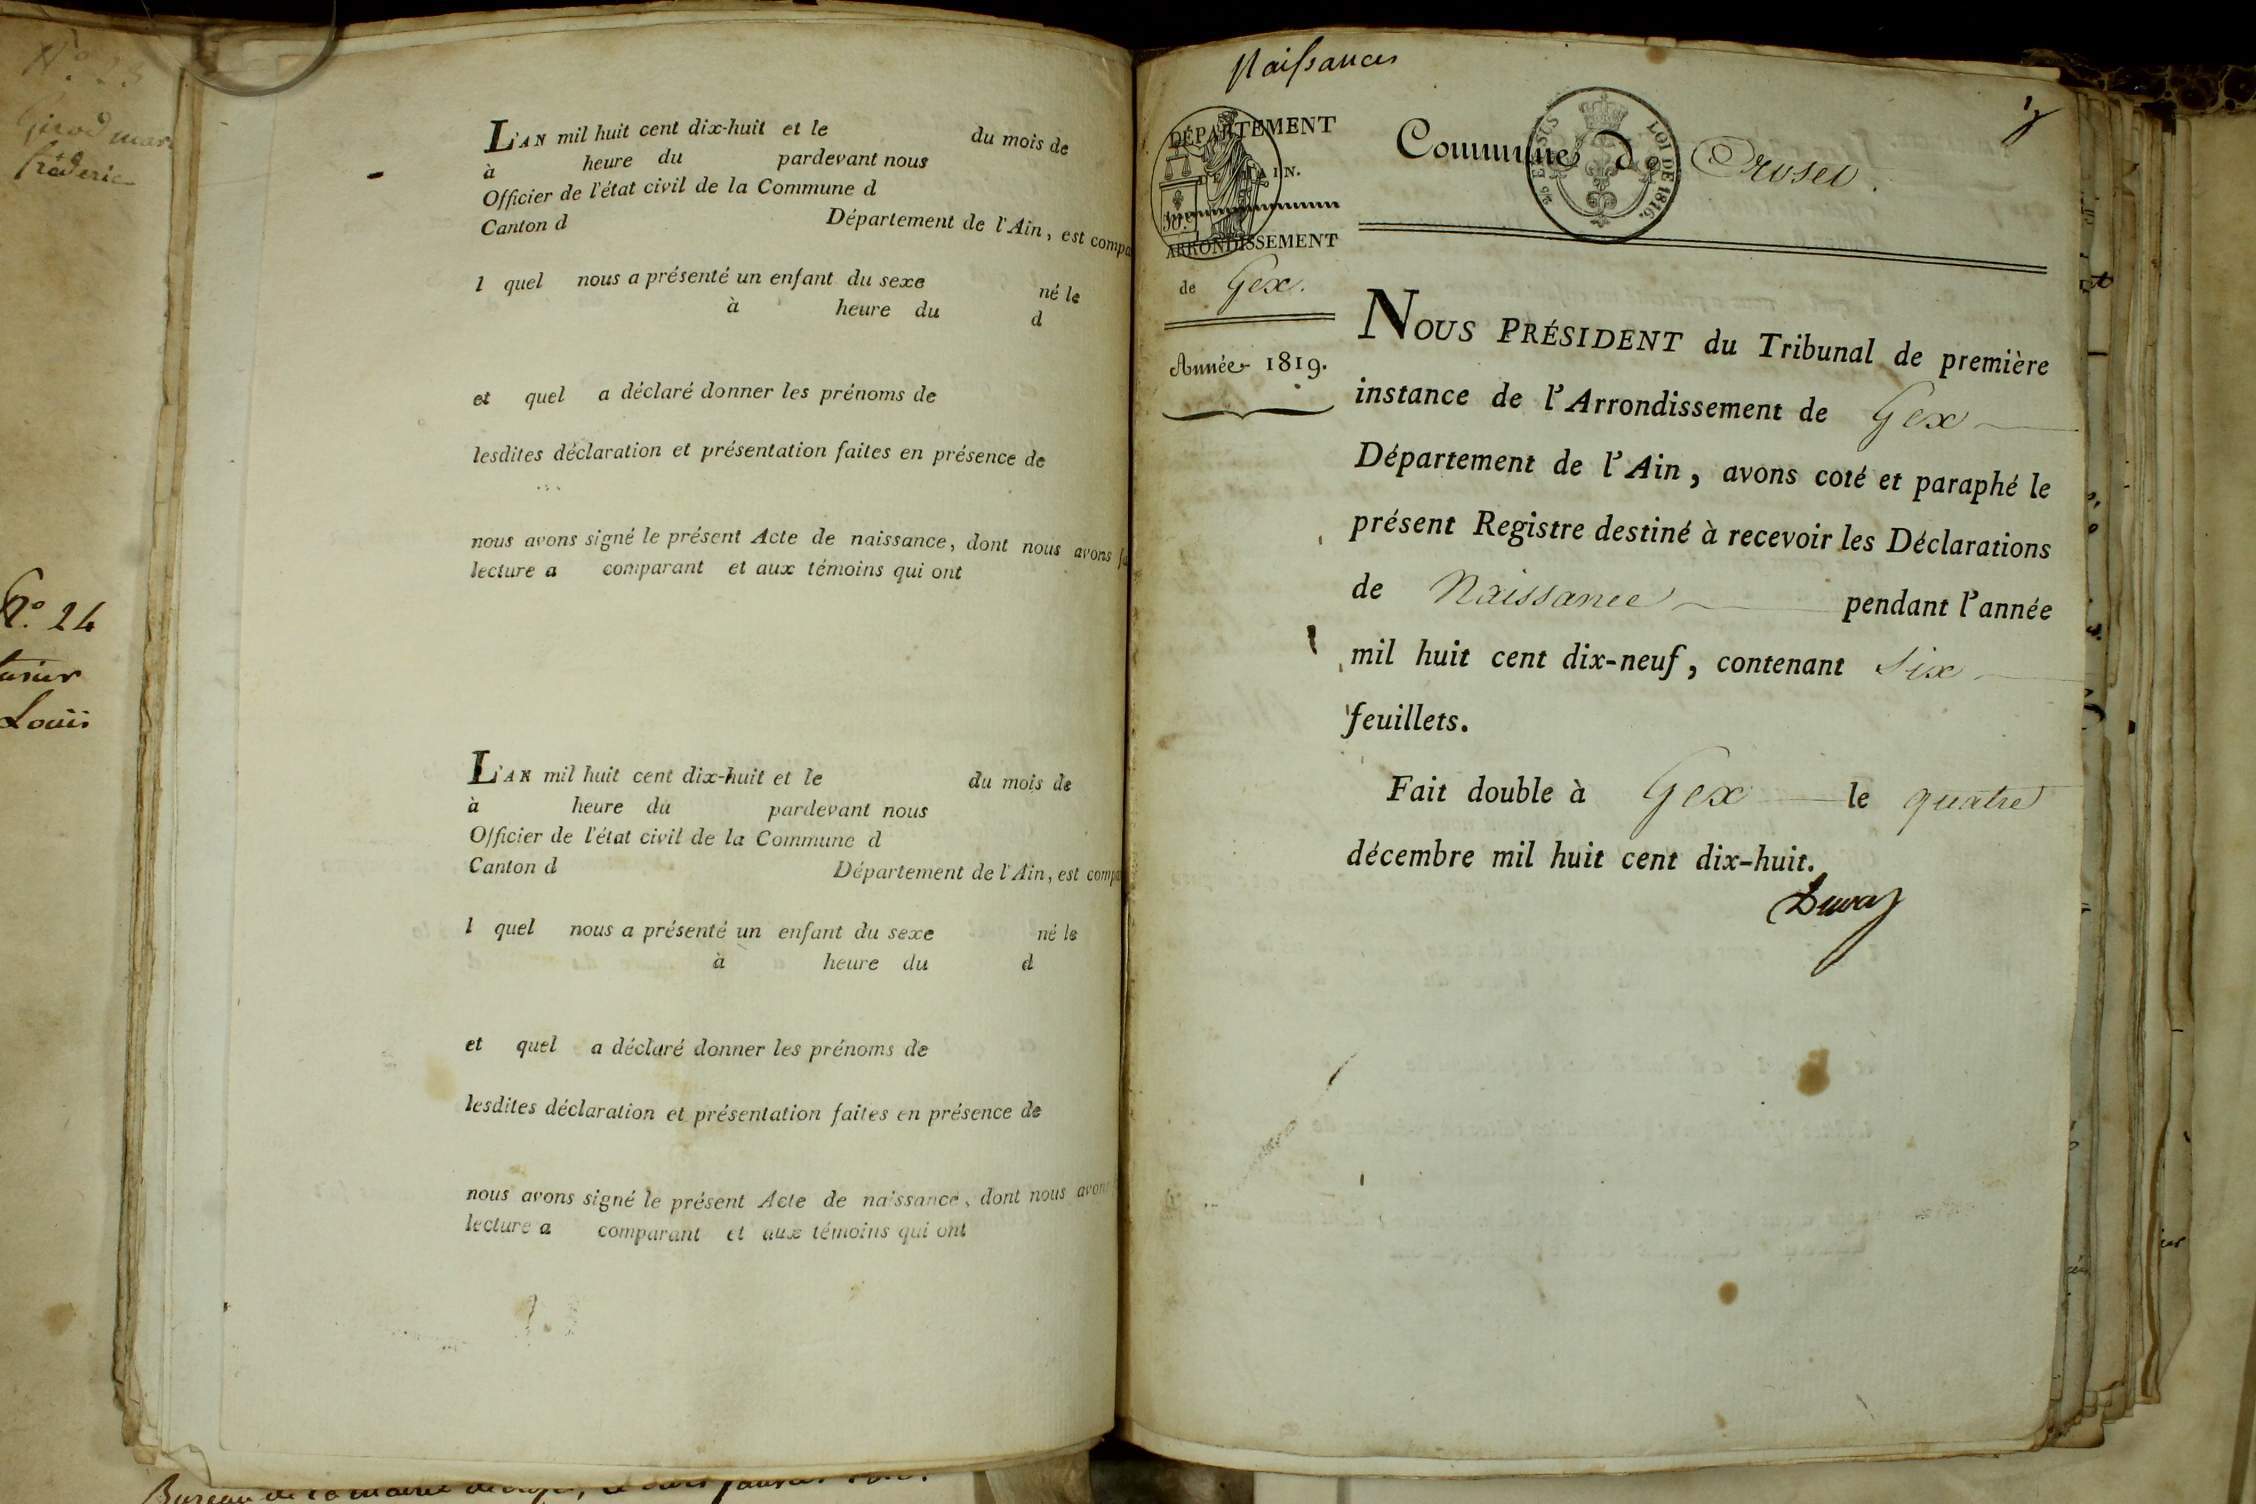 N.º 23
Girod mar
frédéric
N.º 24
Louis
L'AN mil huit cent dix-huit et le du mois de
à heure du pardevant nous
Officier de l'état civil de la Commune d
Canton d Département de l'Ain, est compa
l quel nous a présenté un enfant du sexe né le
à heure du d
et quel a déclaré donner les prénoms de
lesdites déclaration et présentation faites en présence de
nous avons signé le présent Acte de naissance, dont nous avons
lecture a comparant et aux témoins qui ont
L'AN mil huit cent dix-huit et le du mois de
à heure du pardevant nous
Officier de l'état civil de la Commune d
Canton d Département de l'Ain, est compa
l quel nous a présenté un enfant du sexe né le
à heure du d
et quel a déclaré donner les prénoms de
lesdites déclaration et présentation faites en présence de
nous avons signé le présent Acte de naissance, dont nous avons
lecture a comparant et aux témoins qui ont
Bureau de la mairie
Naissances
DÉPARTEMENT
DE L'AIN.
ARRONDISSEMENT
de Gex.
Année 1819.
Commune de Crozet.
EN SUS LOI DE 1816.
NOUS PRÉSIDENT du Tribunal de première
instance de l'Arrondissement de Gex
Département de l'Ain, avons coté et paraphé le
présent Registre destiné à recevoir les Déclarations
de Naissance pendant l'année
mil huit cent dix-neuf, contenant Six
feuillets.
Fait double à Gex le quatre
décembre mil huit cent dix-huit.